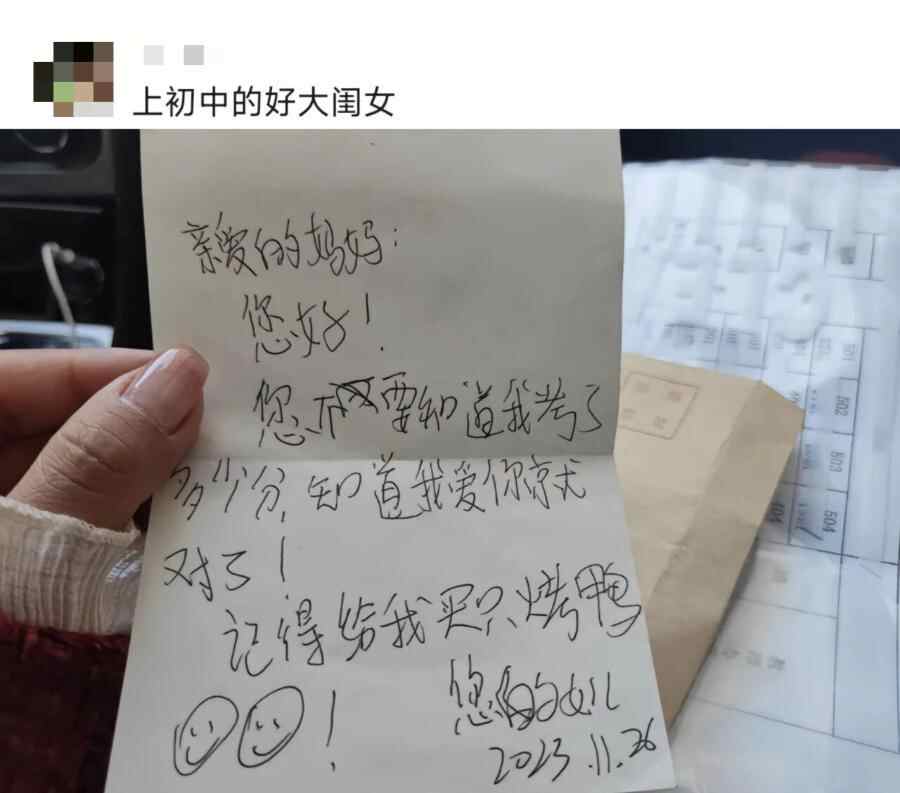 上初中的好大闺女
亲爱的妈妈:
您好!
您不要知道我考了
多少分,知道我爱你就
对了!
记得给我买只烤鸭
!
您的女儿
2023.11.26
502
503
504